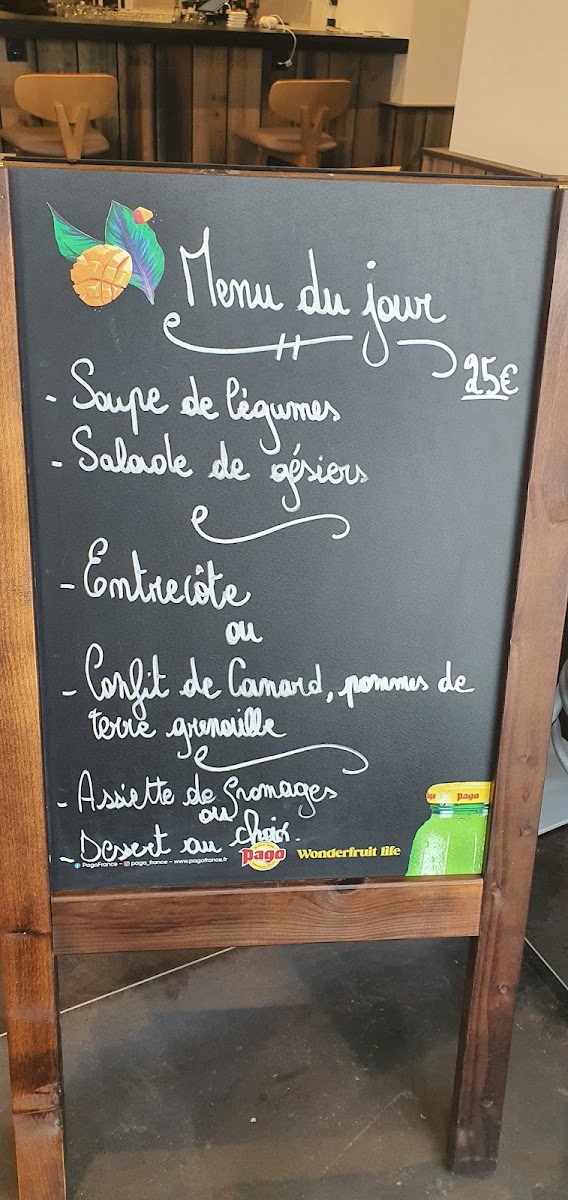 Menu du jour
25€
- Soupe de légumes
- Salade de gésiers
- Entrecôte
ou
- Confit de Canard, pommes de
terre grenaille
- Assiette de fromages
ou
- Dessert au choix.
pago
pago Wonderfruit life
PagoFrance - pago_france - www.pagofrance.fr